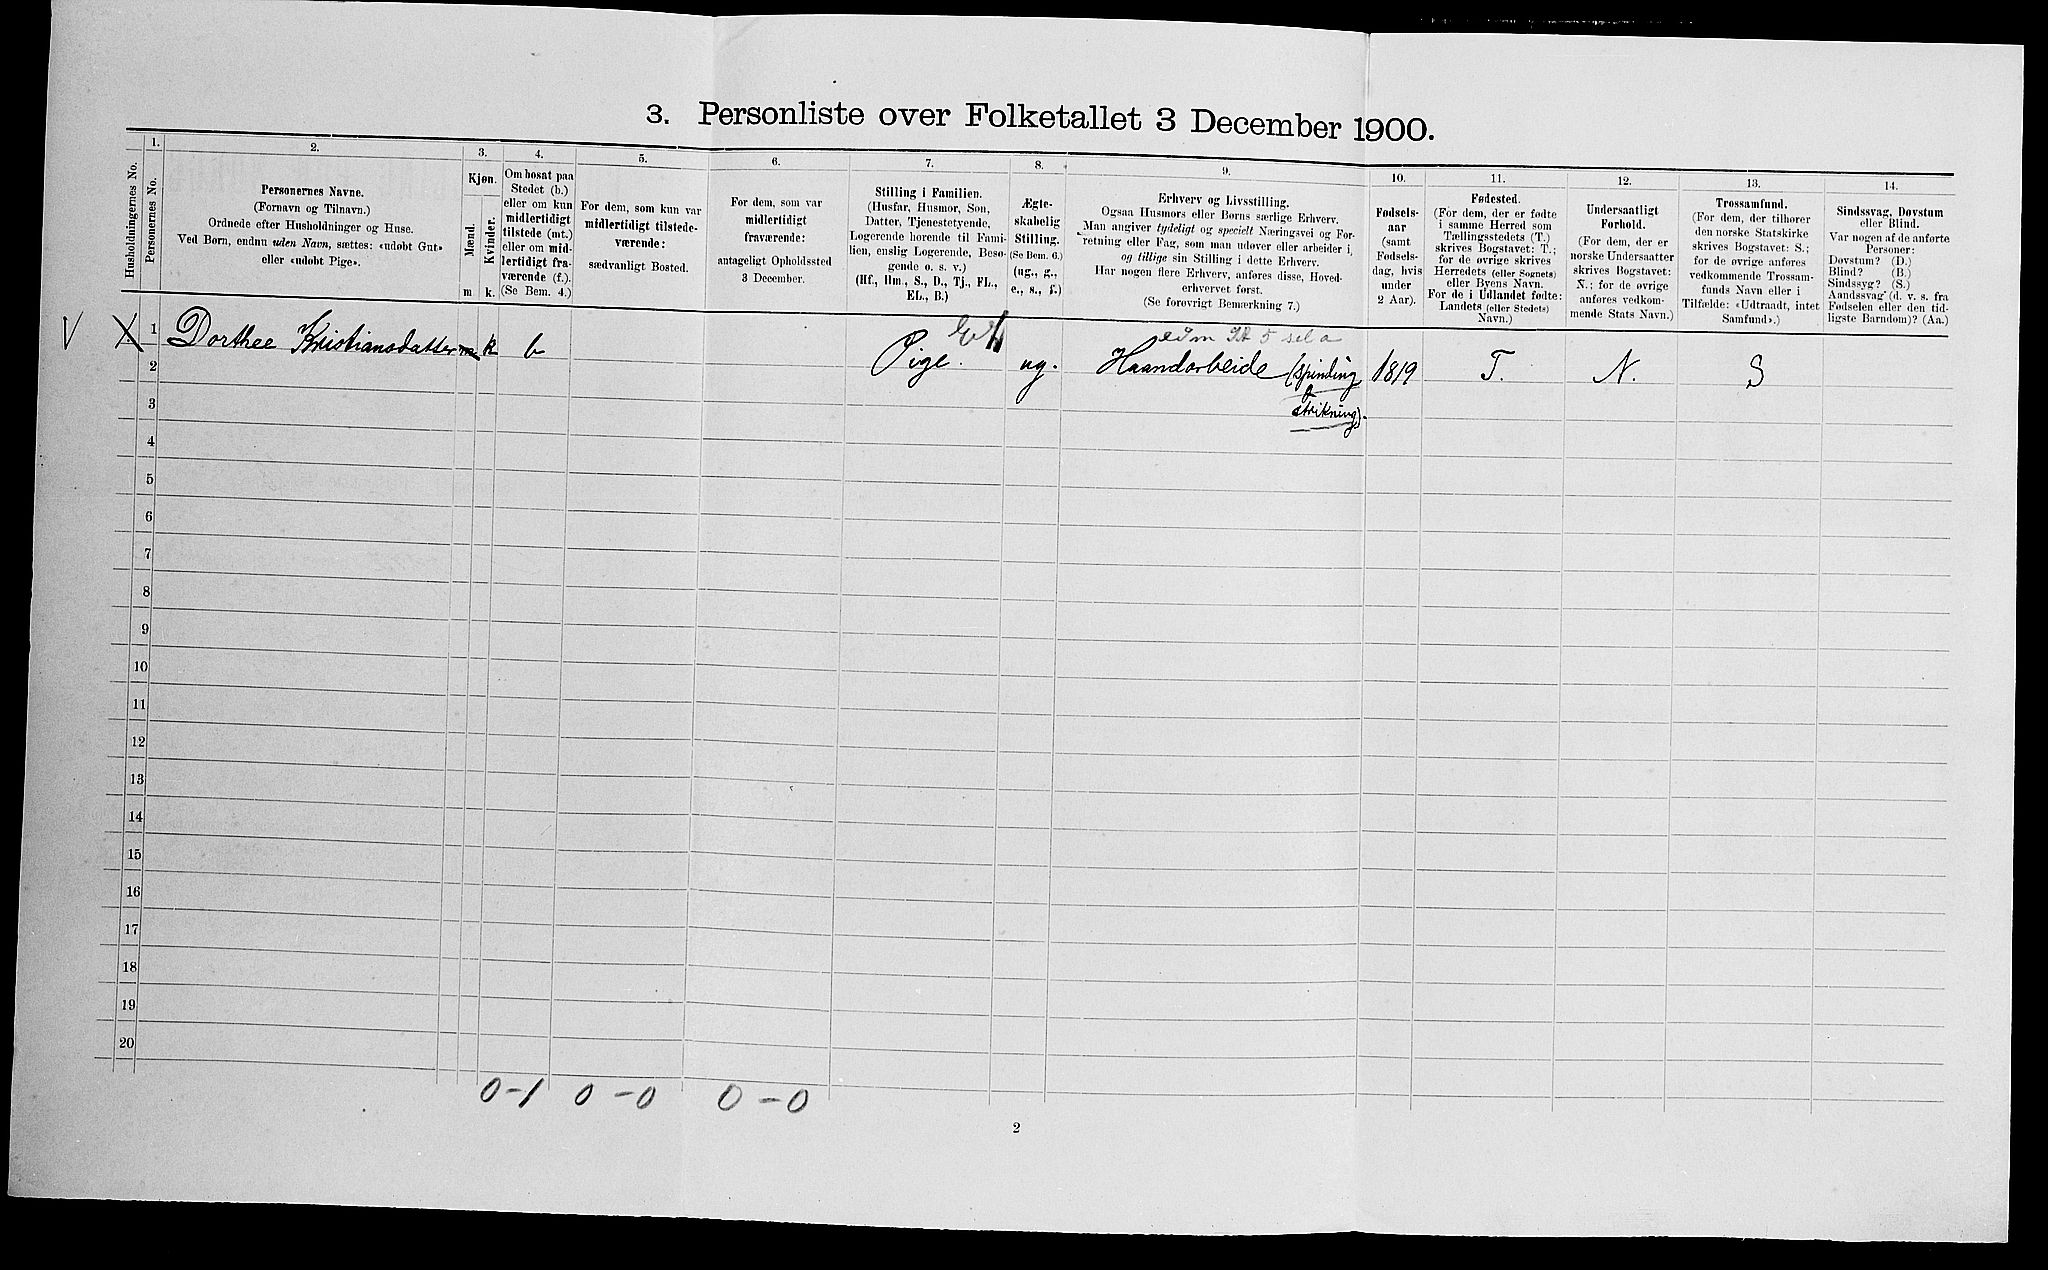 3. Personliste over Folketallet 3 December 1900.
Husholdningernes No.
1.
Personernes No.
2.
Personernes Navne.
(Fornavn og Tilnavn.)
Ordnede efter Husholdninger og Huse.
Ved Børn, endnu uden Navn, sættes: «udøbt Gut»
eller «udøbt Pige».
3.
Kjøn.
Mænd.
Kvinder.
m
k.
4.
Om bosat paa
Stedet (b.)
eller om kun
midlertidigt
tilstede (mt.)
eller om mid-
lertidigt fra-
værende (f.).
(Se Bem. 4.)
5.
For dem, som kun var
midlertidigt tilstede-
værende:
sædvanligt Bosted.
6.
For dem, som var
midlertidigt
fraværende:
antageligt Opholdssted
3 December.
7.
Stilling i Familien.
(Husfar, Husmor, Søn,
Datter, Tjenestetyende,
Logerende hørende til Fami-
lien, enslig Logerende, Besø-
gende o. s. v.)
(Hf., Hm., S., D., Tj., FL.,
EL., B.)
8.
Ægte-
skabelig
Stilling.
(Se Bem. 6.)
(ug., g.,
e., s., f.)
9.
Erhverv og Livsstilling.
Ogsaa Husmors eller Børns særlige Erhverv.
Man angiver tydeligt og specielt Næringsvei og For-
retning eller Fag, som man udøver eller arbeider i,
og tillige sin Stilling i dette Erhverv.
Har nogen flere Erhverv, anføres disse, Hoved-
erhvervet først.
(Se forøvrigt Bemærkning 7.)
10.
Fødsels-
aar
(samt
Fødsels-
dag, hvis
under
2 Aar).
11.
Fødested.
(For dem, der er fødte
i samme Herred som
Tællingsstedets (T.)
skrives Bogstavet: T.;
for de øvrige skrives
Herredets (eller Sognets)
eller Byens Navn.
For de i Udlandet fødte:
Landets (eller Stedets)
Navn.)
12.
Undersaatligt
Forhold.
(For dem, der er
norske Undersaatter
skrives Bogstavet:
N.; for de øvrige
anføres vedkom-
mende Stats Navn.)
13.
Trossamfund.
(For dem, der tilhører
den norske Statskirke
skrives Bogstavet: S.;
for de øvrige anføres
vedkommende Trossam-
funds Navn eller i
Tilfælde: «Udtraadt, intet
Samfund».)
14.
Sindssvag, Døvstum
eller Blind.
Var nogen af de anførte
Personer:
Døvstum? (D.)
Blind? (B.)
Sindssyg? (S.)
Aandssvag (d. v. s. fra
Fødselen eller den tid-
ligste Barndom)? (Aa.)
V X 1 Dorthee Kristiansdatter m k b Pige. ug. Haandarbeide (spinding 1819 T. N. S
strikning).
2
3
4
5
6
7
8
9
10
11
12
13
14
15
16
17
18
19
20
0-1 0-0 0-0
2